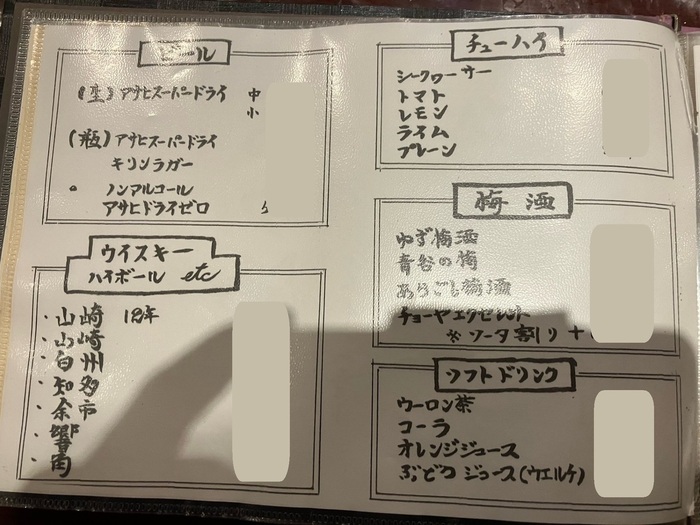 ビール
(生) アサヒスーパードライ 中
小
(瓶) アサヒスーパードライ
キリンラガー
ノンアルコール
アサヒドライゼロ
ウイスキー
ハイボール etc
・山崎 12年
・山崎
・白州
・知多
・余市
・響
・角
チューハイ
シークワーサー
トマト
レモン
ライム
プレーン
梅酒
ゆず梅酒
青谷の梅
あらごし梅酒
チョーヤエクセレント
※ソーダ割り +
ソフトドリンク
ウーロン茶
コーラ
オレンジジュース
ぶどうジュース(ウエルチ)